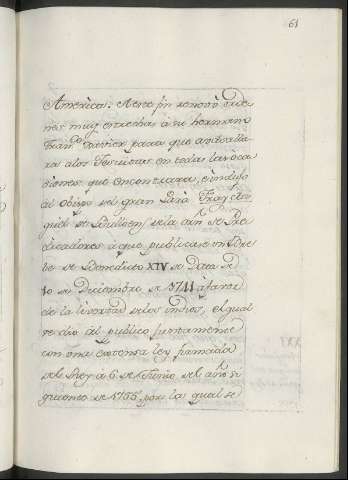 61
America. A este fin renovó orde
nes muy estrechas á su hermano
Fran.co Xavier para que avasalla
ra a los Jesuitas en todas las oca
siones que encontrara, é indujo
al Obispo del gran Pará Fray Mi
guel de Bulloens de la orn de Pre
dicadores á que publicase un Bre
be de Benedicto XIV de Data de
20 de Diciembre de 1741 á favor
de la livertad de los indios, el qual
se dió al publico juntamente
con una extensa ley firmada
del Rey á 6 de Junio del año si
guiente de 1755, por la qual se